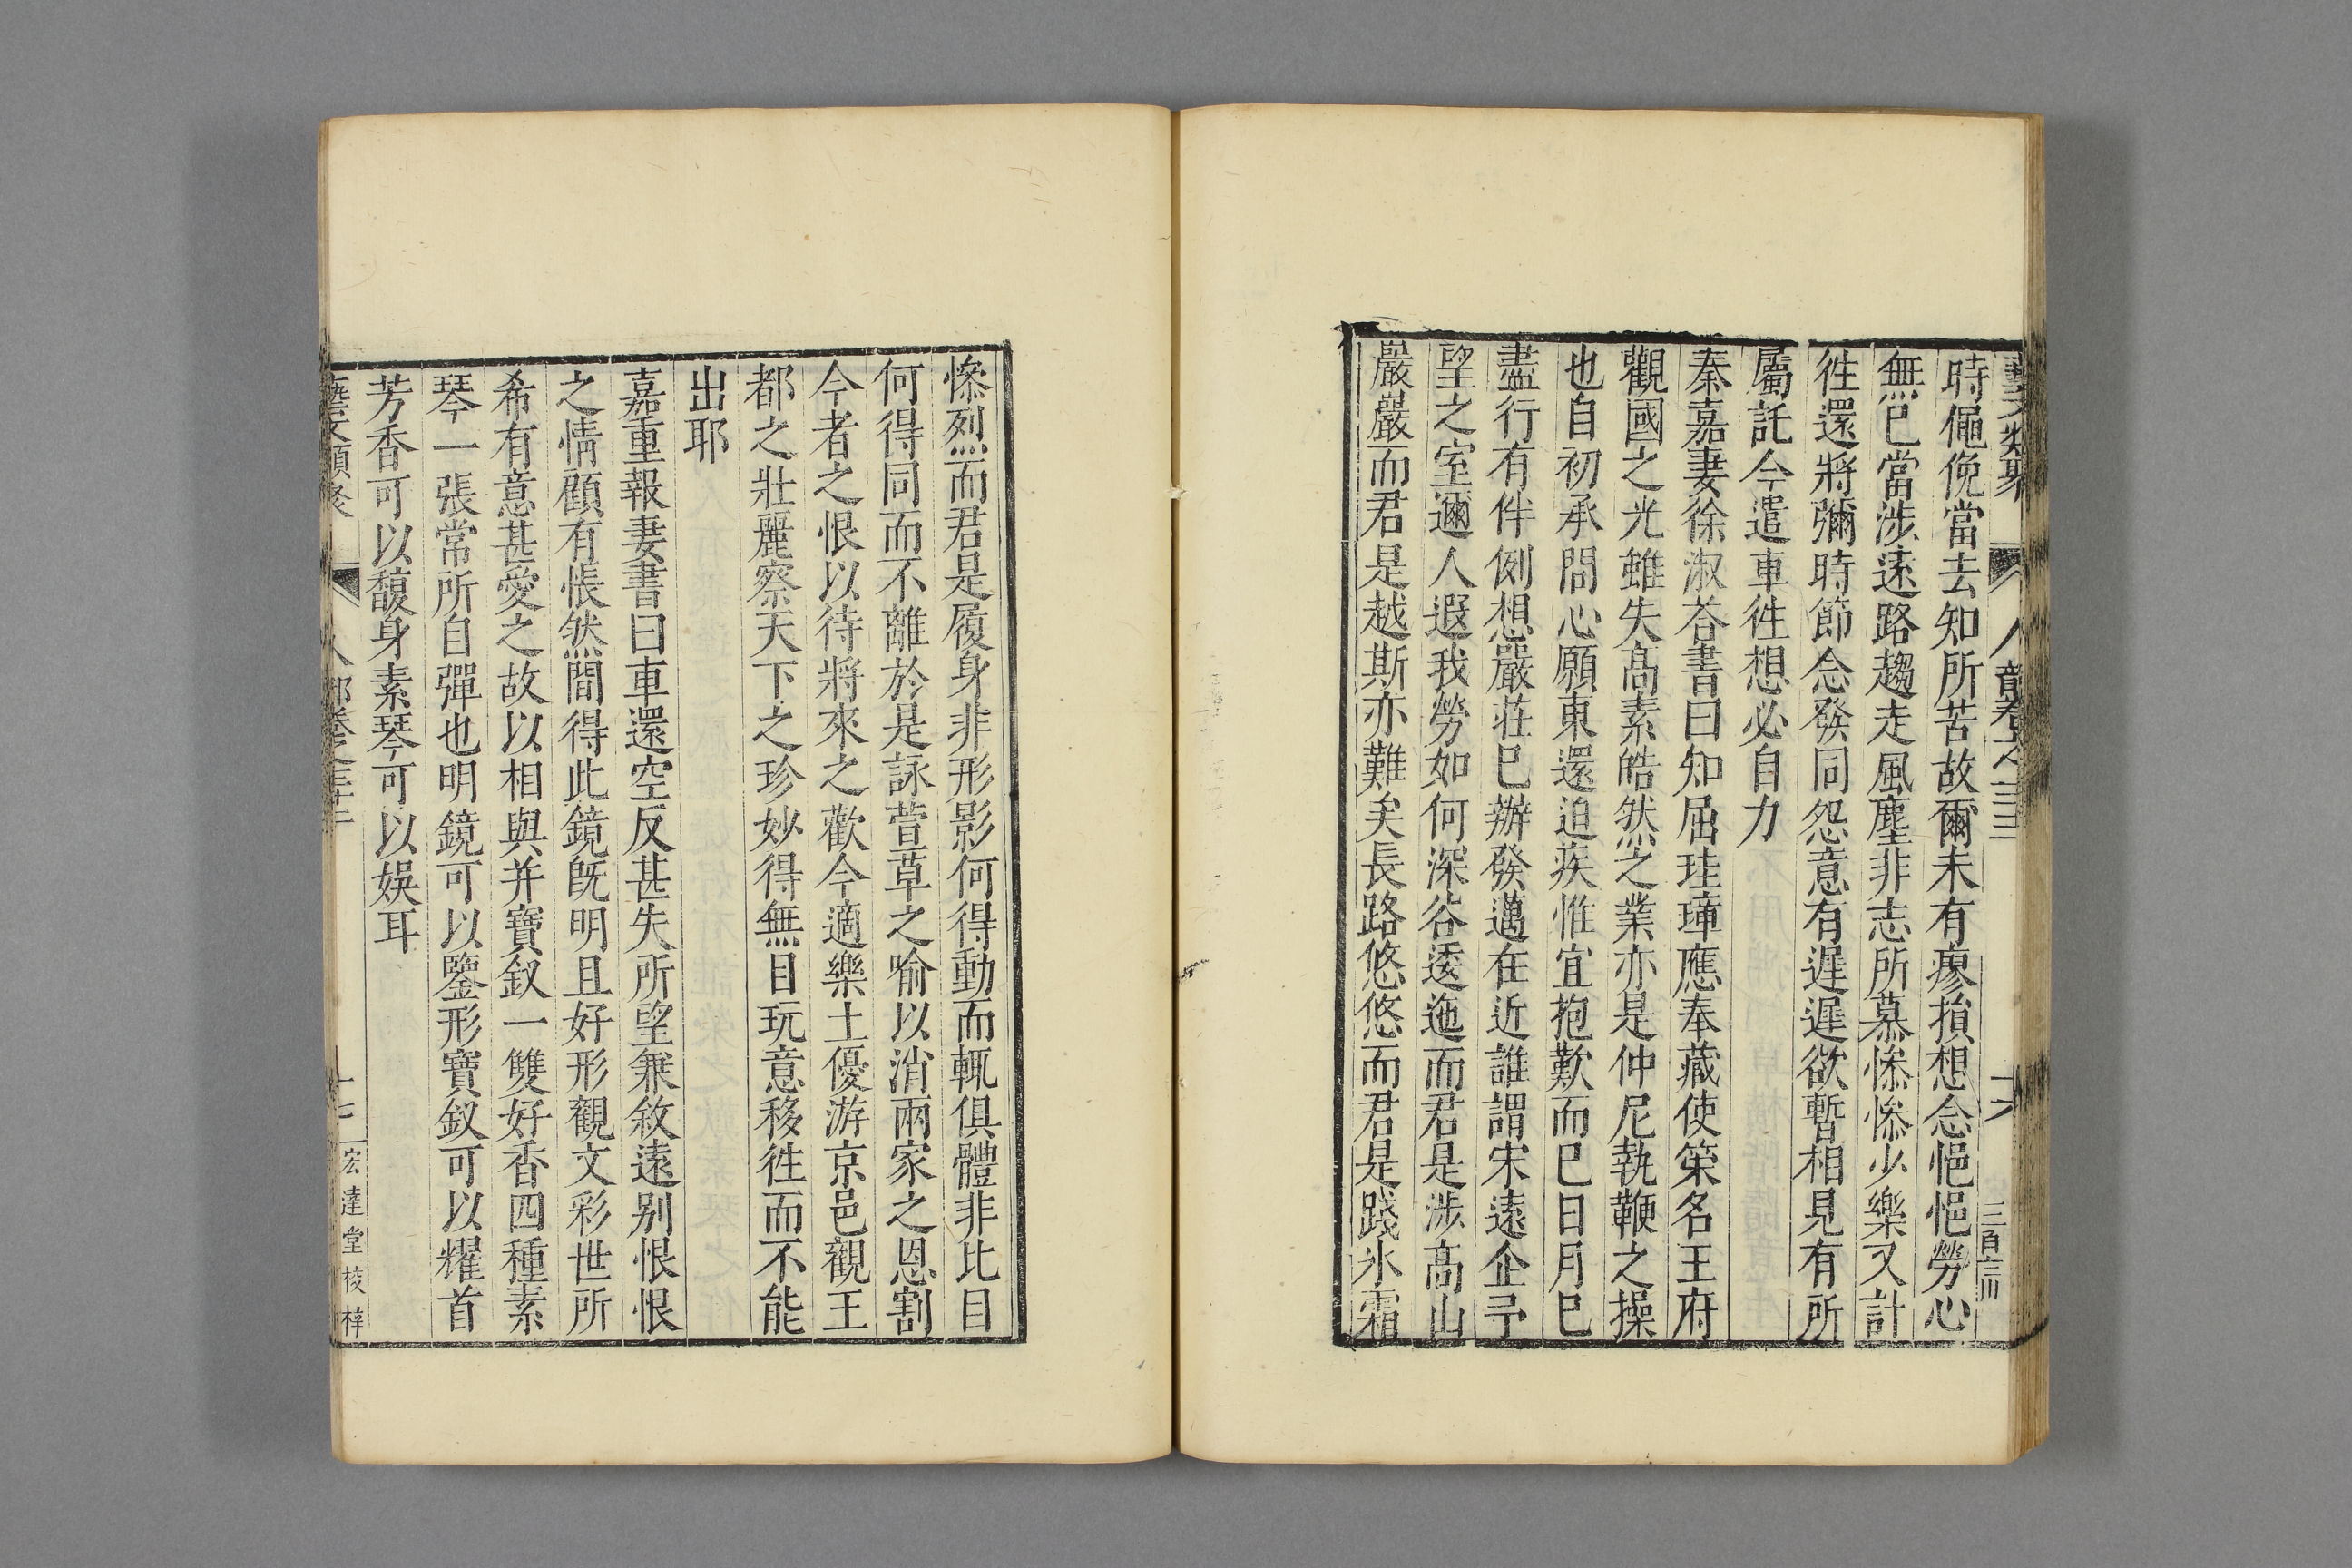 藝文類聚 人部卷之三十二 十六 三百言川
時僶俛當去知所苦故爾未有瘳損想念悒悒勞心
無已當涉遠路趨走風塵非志所慕慘慘少樂又計
徃還將彌時節念發同怨意有遲遲欲暫相見有所
屬託今遣車徃想必自力
秦嘉妻徐淑荅書曰知屈珪璋應奉藏使策名王府
觀國之光雖失髙素皓然之業亦是仲尼執鞭之操
也自初承問心願東還迫疾惟宜抱歎而已日月已
盡行有伴例想嚴莊已辦發邁在近誰謂宋遠企予
望之室邇人遐我勞如何深谷逶迤而君是涉髙山
巖巖而君是越斯亦難矣長路悠悠而君是踐氷霜
慘烈而君是履身非形影何得動而輒俱體非比目
何得同而不離於是詠萱草之喻以消兩家之恩割
今者之恨以待將來之歡今適樂土優游京邑觀王
都之壯麗察天下之珍妙得無目玩意移徃而不能
出耶
嘉重報妻書曰車還空反甚失所望兼敘遠別恨恨
之情顧有悵然間得此鏡旣明且好形觀文彩世所
希有意甚愛之故以相與并寶釵一雙好香四種素
琴一張常所自彈也明鏡可以鑒形寶釵可以耀首
芳香可以馥身素琴可以娛耳
藝文類聚 人部卷之三十二 十七 宏達堂校梓